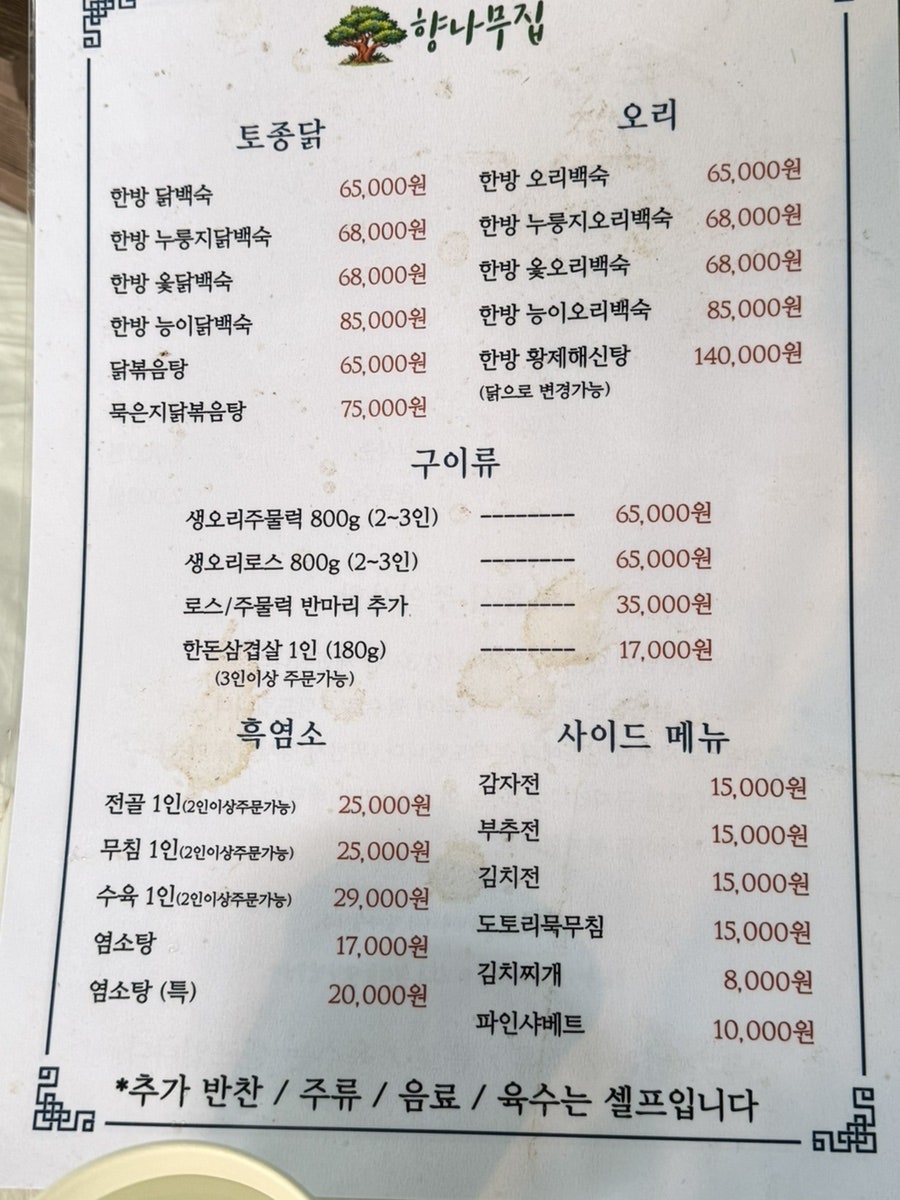 향나무집
토종닭
한방 닭백숙 65,000원
한방 누룽지닭백숙 68,000원
한방 옻닭백숙 68,000원
한방 능이닭백숙 85,000원
닭볶음탕 65,000원
묵은지닭볶음탕 75,000원
오리
한방 오리백숙 65,000원
한방 누룽지오리백숙 68,000원
한방 옻오리백숙 68,000원
한방 능이오리백숙 85,000원
한방 황제해신탕 140,000원
(닭으로 변경가능)
구이류
생오리주물럭 800g (2~3인) --------- 65,000원
생오리로스 800g (2~3인) --------- 65,000원
로스/주물럭 반마리 추가 --------- 35,000원
한돈삼겹살 1인 (180g) --------- 17,000원
(3인이상 주문가능)
흑염소
전골 1인(2인이상주문가능) 25,000원
무침 1인(2인이상주문가능) 25,000원
수육 1인(2인이상주문가능) 29,000원
염소탕 17,000원
염소탕 (특) 20,000원
사이드 메뉴
감자전 15,000원
부추전 15,000원
김치전 15,000원
도토리묵무침 15,000원
김치찌개 8,000원
파인샤베트 10,000원
*추가 반찬 / 주류 / 음료 / 육수는 셀프입니다